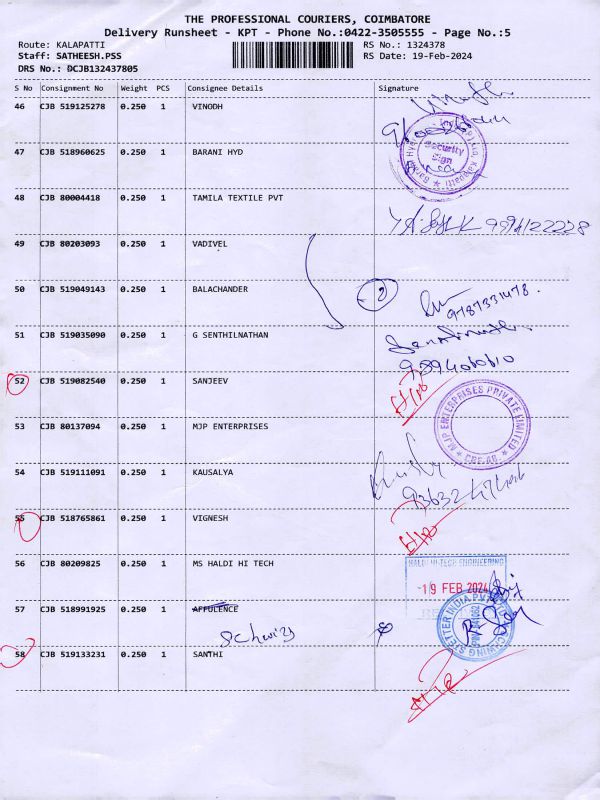 THE PROFESSIONAL COURIERS, COIMBATORE
Delivery Runsheet - KPT - Phone No.:0422-3505555 - Page No.:5
Route: KALAPATTI RS No.: 1324378
Staff: SATHEESH.PSS RS Date: 19-Feb-2024
DRS No.: DCJB132437805
S No Consignment No Weight PCS Consignee Details Signature
46 CJB 519125278 0.250 1 VINODH
47 CJB 518960625 0.250 1 BARANI HYD
Security
Sign
48 CJB 80004418 0.250 1 TAMILA TEXTILE PVT
9994122228
49 CJB 80203093 0.250 1 VADIVEL
50 CJB 519049143 0.250 1 BALACHANDER
2
9787331478.
51 CJB 519035090 0.250 1 G SENTHILNATHAN
52 CJB 519082540 0.250 1 SANJEEV
53 CJB 80137094 0.250 1 MJP ENTERPRISES
MJP ENTERPRISES PRIVATE LIMITED
CBE-48.
54 CJB 519111091 0.250 1 KAUSALYA
55 CJB 518765861 0.250 1 VIGNESH
56 CJB 80209825 0.250 1 MS HALDI HI TECH
HALDI HI-TECH ENGINEERING
19 FEB 2024
57 CJB 518991925 0.250 1 AFFULENCE
Schwizs
58 CJB 519133231 0.250 1 SANTHI